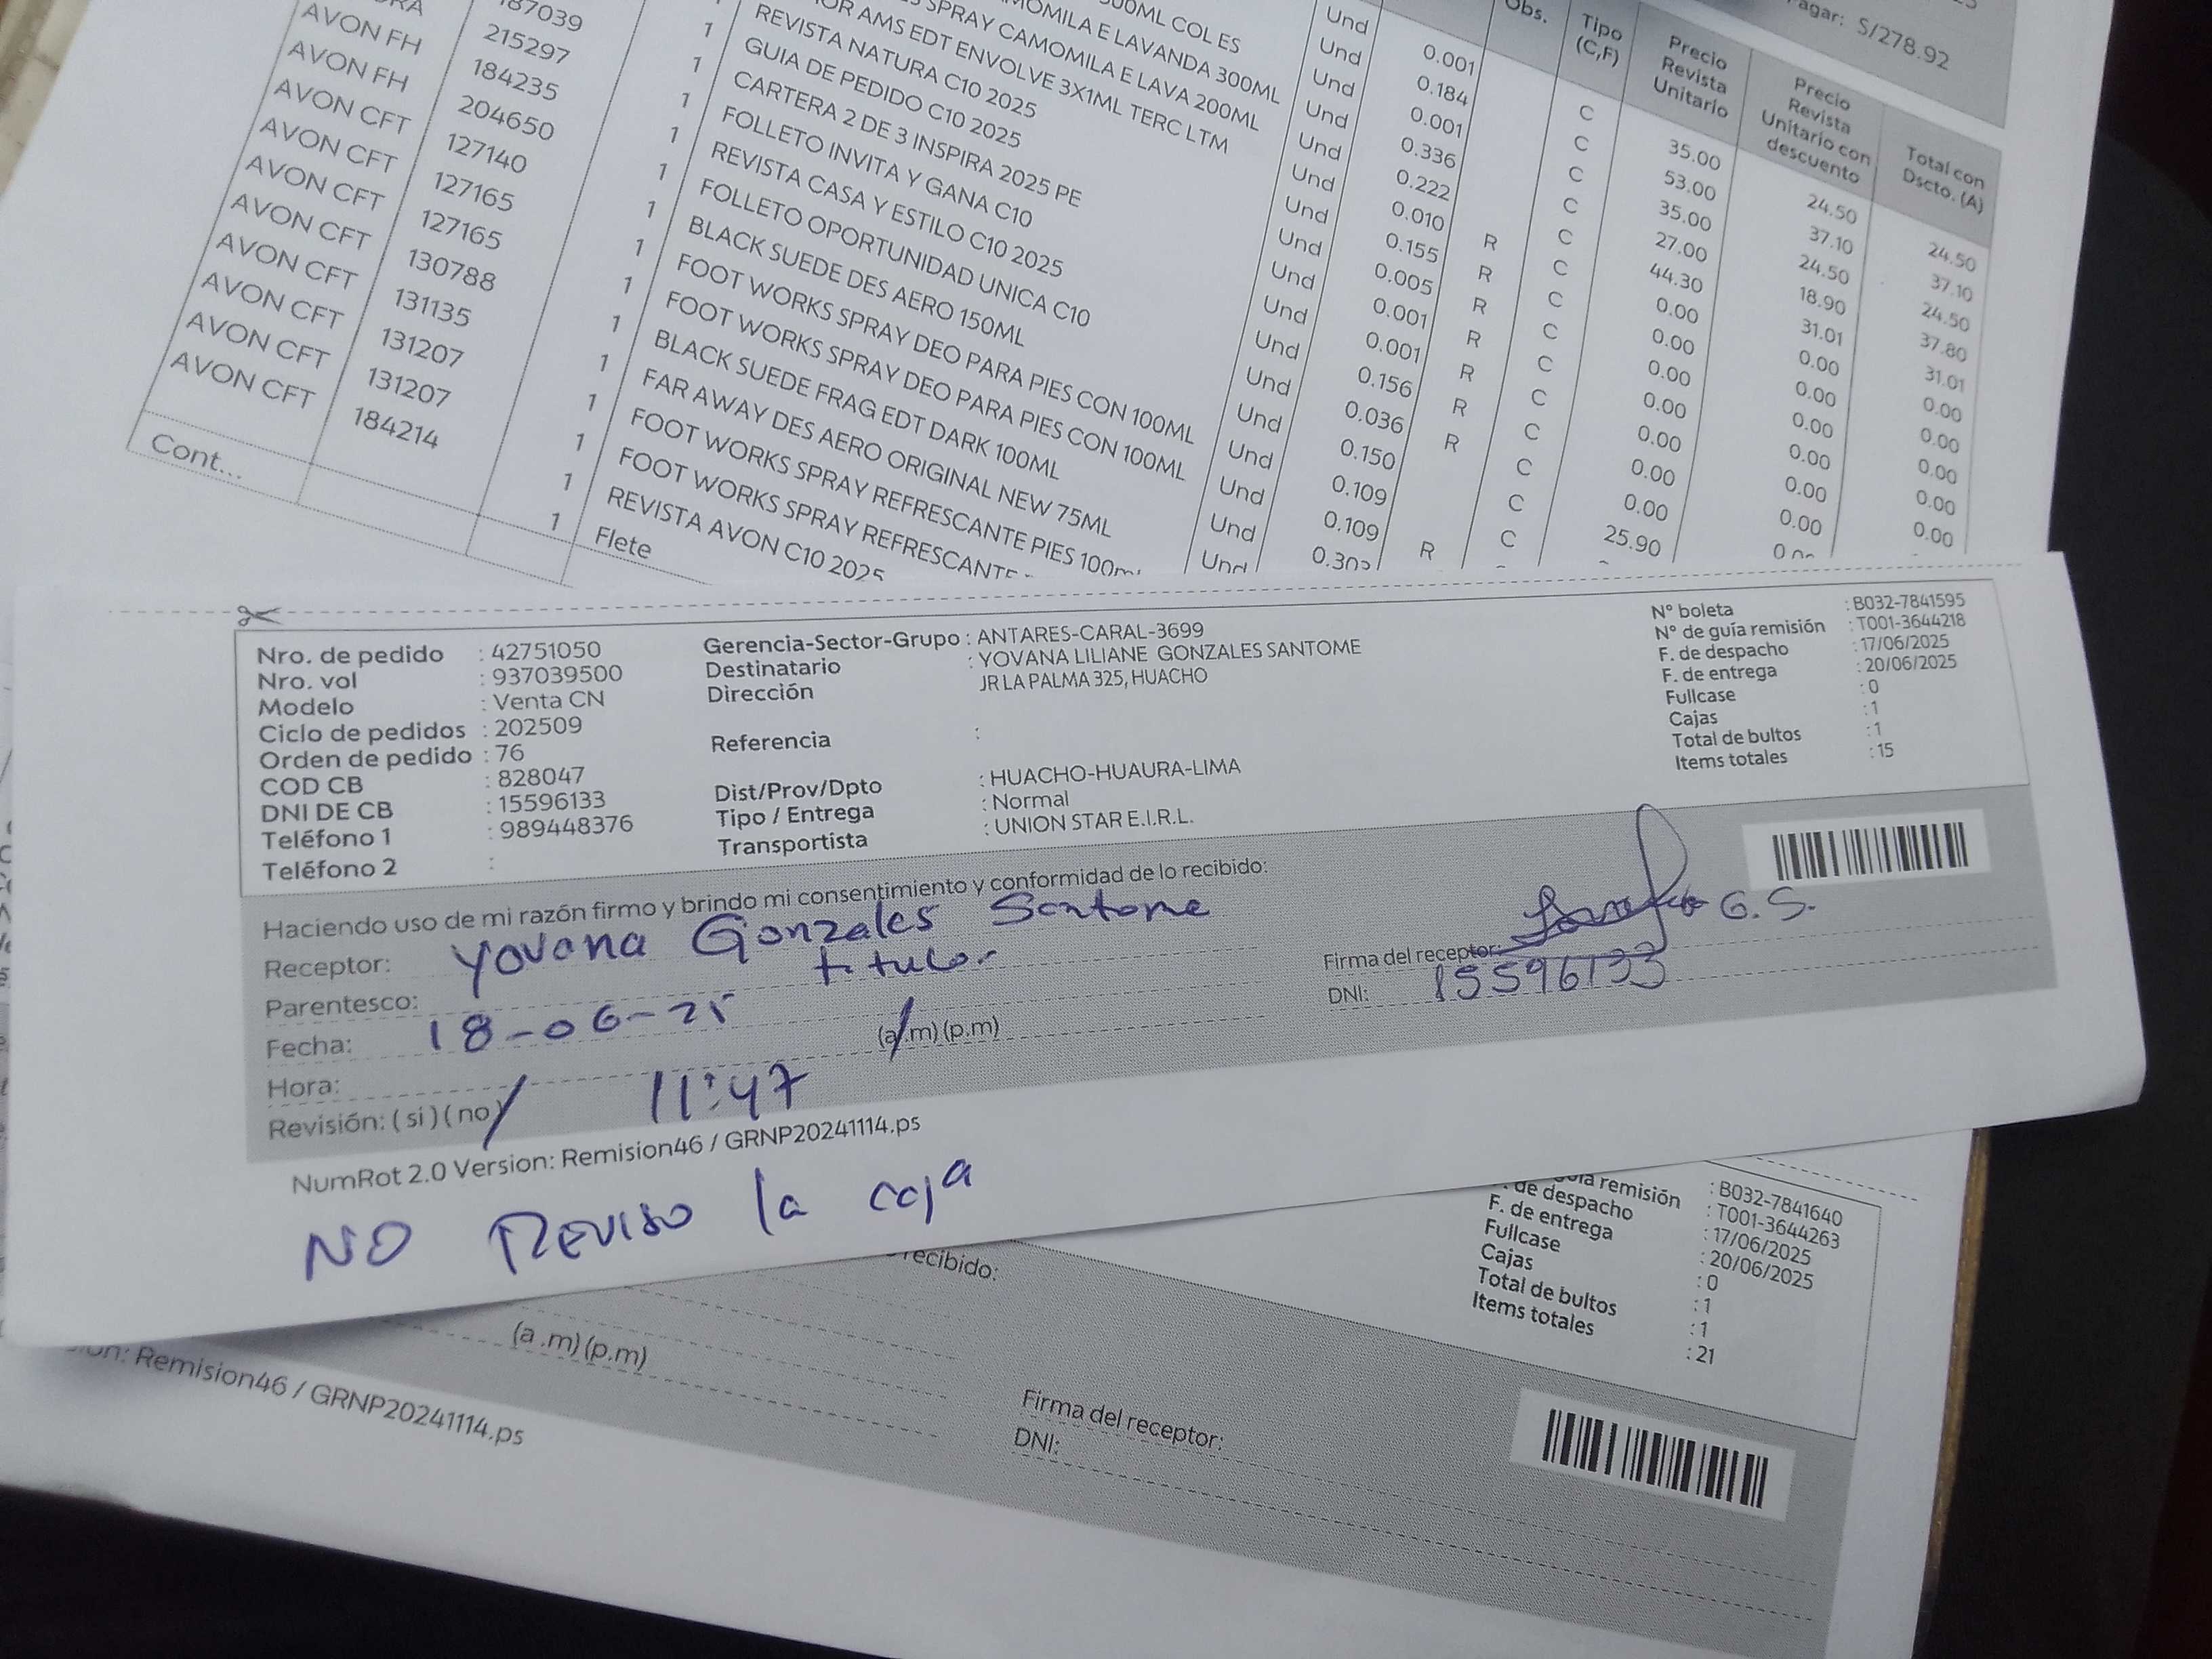 Pagar: S/278.92
Obs.
Tipo (C,F)
Precio Revista Unitario
Precio Revista Unitario con descuento
Total con Dscto. (A)
AVON FH
AVON FH
AVON CFT
AVON CFT
AVON CFT
AVON CFT
AVON CFT
AVON CFT
AVON CFT
AVON CFT
Cont...
187039
215297
184235
204650
127140
127165
127165
130788
131135
131207
131207
184214
500ML COL ES
SPRAY CAMOMILA E LAVANDA 300ML
CAMOMILA E LAVA 200ML
AMS EDT ENVOLVE 3X1ML TERC LTM
REVISTA NATURA C10 2025
GUIA DE PEDIDO C10 2025
CARTERA 2 DE 3 INSPIRA 2025 PE
FOLLETO INVITA Y GANA C10
REVISTA CASA Y ESTILO C10 2025
FOLLETO OPORTUNIDAD UNICA C10
BLACK SUEDE DES AERO 150ML
FOOT WORKS SPRAY DEO PARA PIES CON 100ML
FOOT WORKS SPRAY DEO PARA PIES CON 100ML
BLACK SUEDE FRAG EDT DARK 100ML
FAR AWAY DES AERO ORIGINAL NEW 75ML
FOOT WORKS SPRAY REFRESCANTE PIES 100ml
FOOT WORKS SPRAY REFRESCANTE
REVISTA AVON C10 2025
Flete
Und 0.001
Und 0.184
Und 0.001
Und 0.336
Und 0.222
Und 0.010
Und 0.155
Und 0.005
Und 0.001
Und 0.001
Und 0.156
Und 0.036
Und 0.150
Und 0.109
Und 0.109
35.00 24.50 24.50
53.00 37.10 37.10
35.00 24.50 24.50
27.00 18.90 37.80
44.30 31.01 31.01
0.00 0.00 0.00
0.00 0.00 0.00
0.00 0.00 0.00
0.00 0.00 0.00
0.00 0.00 0.00
25.90
Nro. de pedido : 42751050
Nro. vol : 937039500
Modelo : Venta CN
Ciclo de pedidos : 202509
Orden de pedido : 76
COD CB : 828047
DNI DE CB : 15596133
Teléfono 1 : 989448376
Teléfono 2 :
Gerencia-Sector-Grupo : ANTARES-CARAL-3699
Destinatario : YOVANA LILIANE GONZALES SANTOME
Dirección JR LA PALMA 325, HUACHO
Referencia :
Dist/Prov/Dpto : HUACHO-HUAURA-LIMA
Tipo / Entrega : Normal
Transportista : UNION STAR E.I.R.L.
N° boleta : B032-7841595
N° de guía remisión : T001-3644218
F. de despacho : 17/06/2025
F. de entrega : 20/06/2025
Fullcase : 0
Cajas : 1
Total de bultos : 1
Items totales : 15
Haciendo uso de mi razón firmo y brindo mi consentimiento y conformidad de lo recibido:
Receptor: Yovana Gonzales Santome
Parentesco: titular
Fecha: 18-06-25
(a.m) (p.m)
Hora: 11:47
Revisión: (si) (no)
Firma del receptor: G.S.
DNI: 15596133
NumRot 2.0 Version: Remision46 / GRNP20241114.ps
NO REVISO la caja
recibido:
(a .m) (p.m)
Remision46 / GRNP20241114.ps
: B032-7841640
guía remisión : T001-3644263
F. de despacho : 17/06/2025
F. de entrega : 20/06/2025
Fullcase : 0
Cajas : 1
Total de bultos : 1
Items totales : 21
Firma del receptor:
DNI: